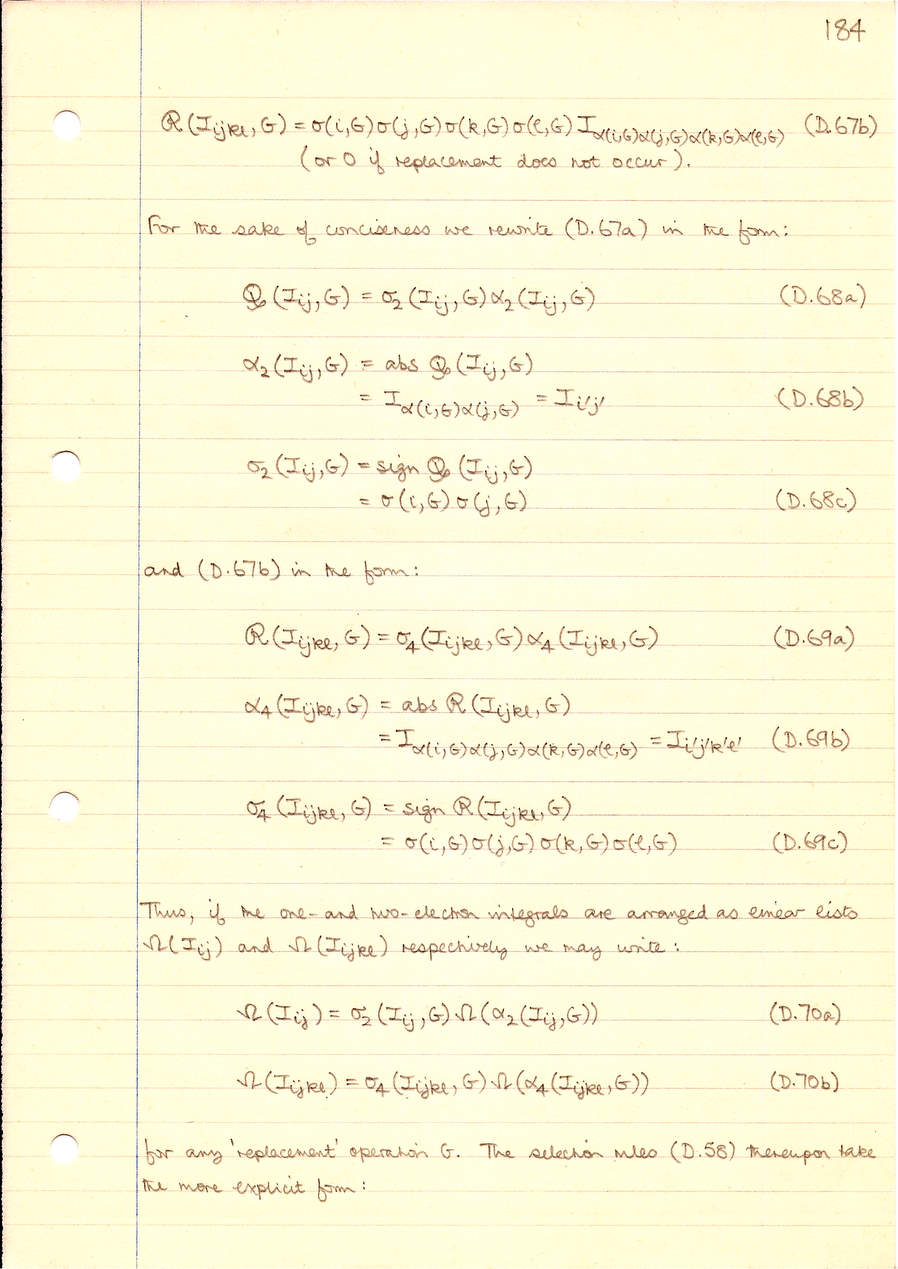 184
ℛ(I_ijkℓ, G) = σ(i,G)σ(j,G)σ(k,G)σ(ℓ,G) I_α(i,G)α(j,G)α(k,G)α(ℓ,G) (D.67b)
(or 0 if replacement does not occur).
For the sake of conciseness we rewrite (D.67a) in the form:
ℛ(I_ij, G) = σ₂(I_ij, G) α₂(I_ij, G) (D.68a)
α₂(I_ij, G) = abs ℛ(I_ij, G)
= I_α(i,G)α(j,G) = I_i'j' (D.68b)
σ₂(I_ij, G) = sign ℛ(I_ij, G)
= σ(i,G) σ(j,G) (D.68c)
and (D.67b) in the form:
ℛ(I_ijkℓ, G) = σ₄(I_ijkℓ, G) α₄(I_ijkℓ, G) (D.69a)
α₄(I_ijkℓ, G) = abs ℛ(I_ijkℓ, G)
= I_α(i,G)α(j,G)α(k,G)α(ℓ,G) = I_i'j'k'ℓ' (D.69b)
σ₄(I_ijkℓ, G) = sign ℛ(I_ijkℓ, G)
= σ(i,G)σ(j,G)σ(k,G)σ(ℓ,G) (D.69c)
Thus, if the one- and two-electron integrals are arranged as linear lists
Ω(I_ij) and Ω(I_ijkℓ) respectively we may write:
Ω(I_ij) = σ₂(I_ij, G) Ω(α₂(I_ij, G)) (D.70a)
Ω(I_ijkℓ) = σ₄(I_ijkℓ, G) Ω(α₄(I_ijkℓ, G)) (D.70b)
for any 'replacement' operation G. The selection rules (D.58) thereupon take
the more explicit form: